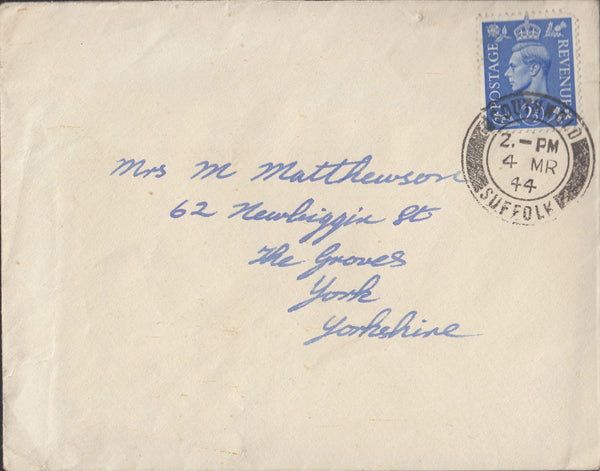 POSTAGE REVENUE
2½D
SOUTHWOLD
2.-PM
4 MR
44
SUFFOLK
Mrs M Matthewson
62 Newbiggin St
The Groves
York
Yorkshire